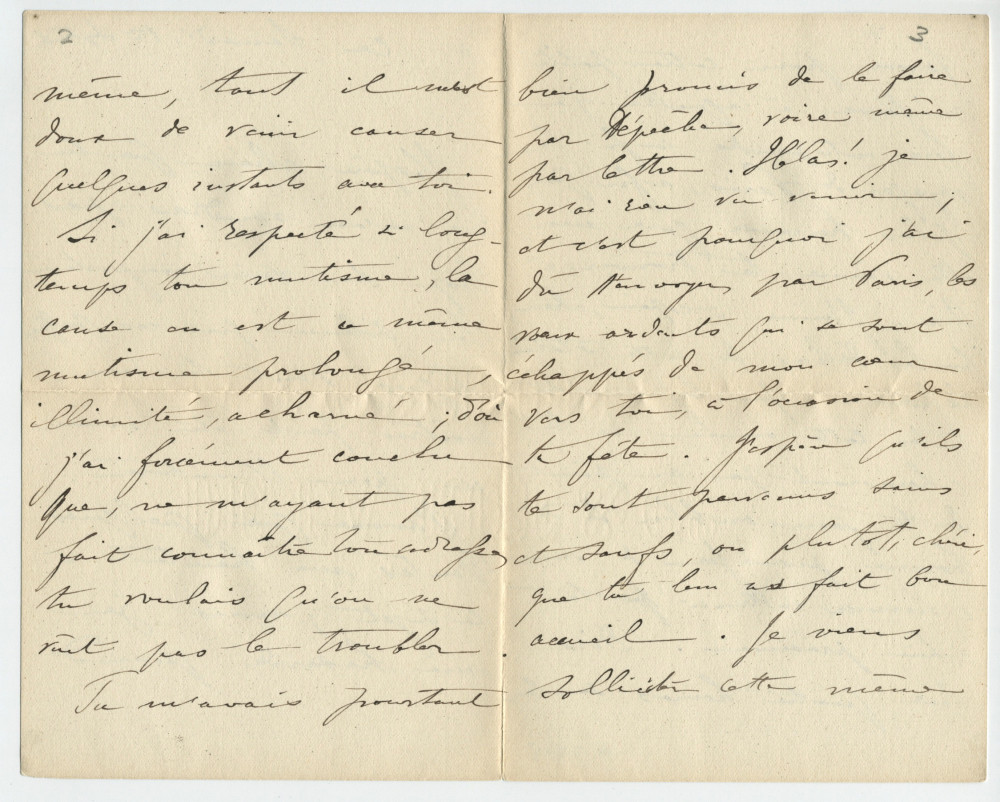 2
même, tant il m'est
doux de venir causer
quelques instants avec toi.
Si j'ai respecté si long-
temps ton mutisme, la
cause en est ce même
mutisme prolongé,
illimité, acharné ; d'où
j'ai forcément conclu
que, ne m'ayant pas
fait connaître ton adresse,
tu voulais qu'on ne
vînt pas le troubler.
Tu m'avais pourtant
3
bien promis de le faire
par Dépêche, voire même
par lettre. Hélas! je
n'ai rien vu venir ;
et c'est pourquoi j'ai
dû t'envoyer, par Paris, les
vœux ardents qui se sont
échappés de mon cœur
vers toi, à l'occasion de
ta fête. J'espère qu'ils
te sont parvenus sains
et saufs, ou plutôt, chéri,
que tu leur as fait bon
accueil. Je viens
solliciter cette même